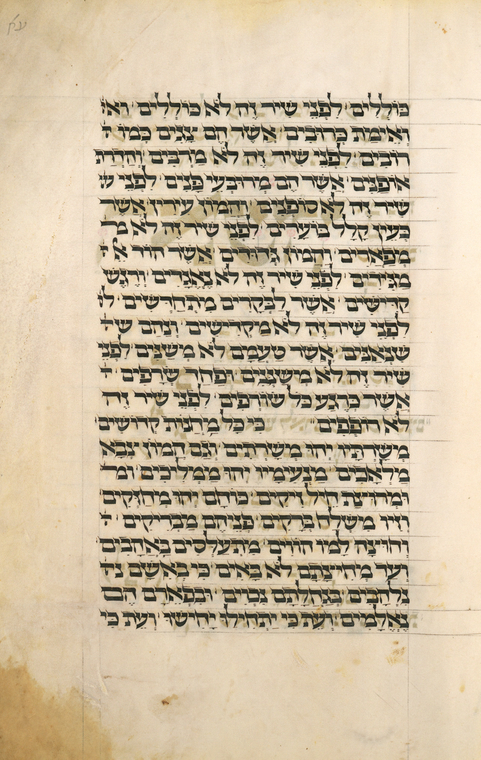 כוללים לפני שיר זה לא כוללים ואי
ואימת כרובים אשר הם צגים כמו ל
רוכים לפני שיר זה לא מרבים וחרדת
אופנים אשר הם מרובעי פנים לפני ש
שיר זה לא סופנים והמון עירין אשר
כעין קלל בוערים לפני שיר זה לא מ
מפארים והמון גדודים אשר
מגידים לפני שיר זה לא נאגדים ורגש
קדישים אשר לבקרים מתחדשים ל
לפני שיר זה לא מקדישים ונהם ש
שנאנים אשר טעמם לא משנים לפני
שיר זה לא משננים ופחד שרפים
אשר כרגע כל שורפים לפני שיר זה
לא רופפים כי כל מחנות קדושים
משרתיו יהו משרתים וגם המון צבא
מלאכים מנעימיו יהו ממליכים ומ
ומרוצת חיול זיקים כוחם יהו מחזקים
וזיו משלח ברקים פניהם מבריקים
ורוצה למי חודים מתעלסים באהבים
ועד מחיצתם לא באים כי באשם
נלהבים בגחלתם נכוים ובפארם הם
נאלמים ועת כי יתחילו יחרישו ועת כי